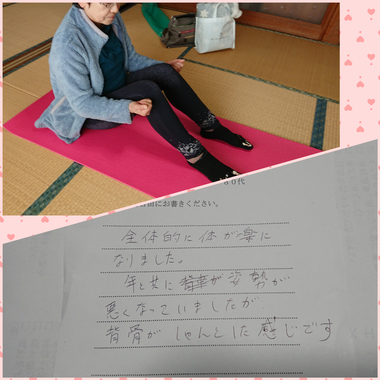 ０代
由にお書きください。
全体的に体が楽に
なりました。
年と共に 姿勢が
悪くなっていましたが
背骨がしゃんとした感じです